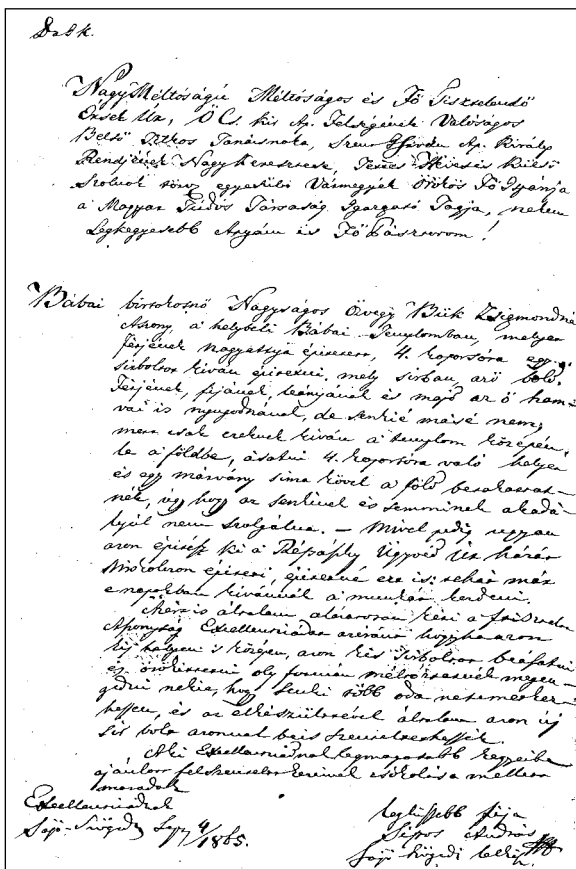 Nagy Méltóságú Méltóságos és Fő Tisztelendő
Érsek Úr, Ő Cs. kir Ap. Felségének Valóságos
Belső Titkos Tanácsnoka, Szent István Ap. Király
Rendjének Nagy Keresztese, Heves és Külső
Szolnok törv. egyesült Vármegyék Örökös Fő Ispánja
a Magyar Tudós Társaság Igazgató Tagja, nekem
Legkegyesebb Atyám és Fő Pásztorom!
Bábai birtokosnő Nagyságos Özvegy Bük Zsigmondné
Asszony, a helybeli Bábai Templomban, melyet
férjének nagyattya építtetett, 4. koporsóra egy
sírboltot kíván építtetni, mely sírban, az ő bold.
Férjének, fijának, leányának és majd az ő ham-
vai is nyugodnának, de senkié másé nem,
mert csak ezeknek kíván a templom közepén,
le a földbe, ásatni 4. koporsóra való helyet
és egy márvány sima kővel a föld betakartat-
nék, úgy hogy az senkinek és semminek akadá-
lyúl nem szolgálna. – Mivel pedig ugyan
azon építész ki a Ügyvéd Úr házát
Miskolczon építeni, építené ezt is; tehát már
e napokban kívánná a munkát kezdeni.
Mért is általam alázatosan kéri a tisztelt
Asszonyság Excellentiádat aziránt hogy ha azon
kis helyen s közepén, azon kis sírboltot, beásatni
és örökíttetni oly formán méltóztatnék megen-
gedni nekie, hogy senki több oda ne temetkez-
hessen, és az elkészültével általam azon új
sír bolt azonnal be is szenteltethessék.
Ki Excellentiádnak legmagasabb kegyeibe
ajánlott felszentelt kezeinek csókolása mellett
maradok
Excellentiádnak
Sajó-Szögeden Sept 4/1865.
legkissebb fija
Sipos András
Sajó Szögedi lelkész